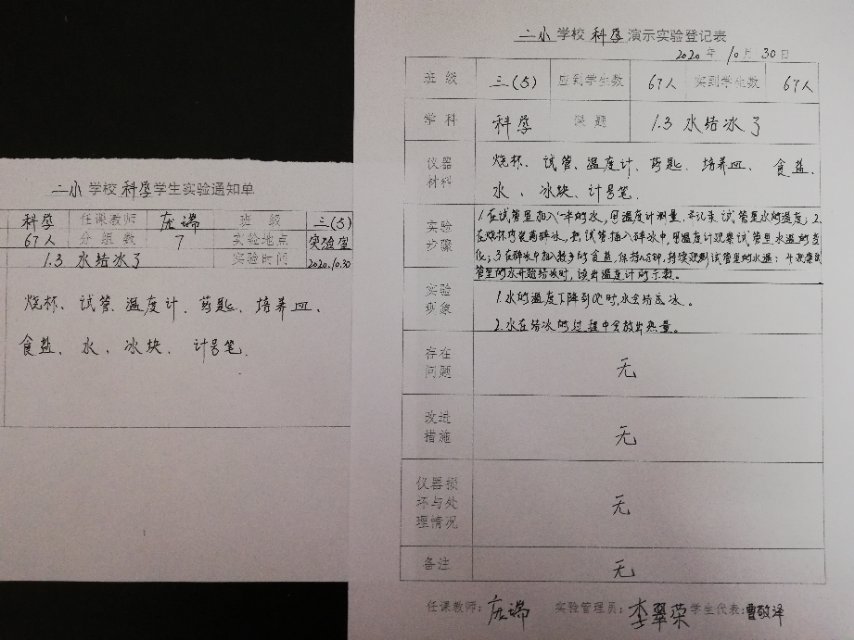 二小学校科学学生实验通知单
科学 任课教师 庞端 班级 三(5)
67人 分组数 7 实验地点 实验室
1.3 水结冰了 实验时间 2020.10.30
烧杯、试管、温度计、药匙、培养皿、
食盐、水、冰块、计号笔.
二小学校科学演示实验登记表
2020年10月30日
班级 三(5) 应到学生数 67人 实到学生数 67人
学科 科学 课题 1.3 水结冰了
仪器材料 烧杯、试管、温度计、药匙、培养皿、食盐、
水、冰块、计号笔.
实验步骤 1.在试管里加入一半的水,用温度计测量,并记录试管里水的温度;2.
在烧杯内装满碎冰,把试管插入碎冰中,用温度计观察试管里水温的变
化;3.在碎冰中加入较多的食盐,保持几分钟,持续观测试管里的水温;4.观察试
管里的水开始结冰时,读出温度计的示数。
实验现象 1.水的温度下降到0℃时,水会结成冰。
2.水在结冰的过程中会放出热量。
存在问题 无
改进措施 无
仪器损坏与处理情况 无
备注 无
任课教师:庞端 实验管理员:李翠荣 学生代表:曹敬泽